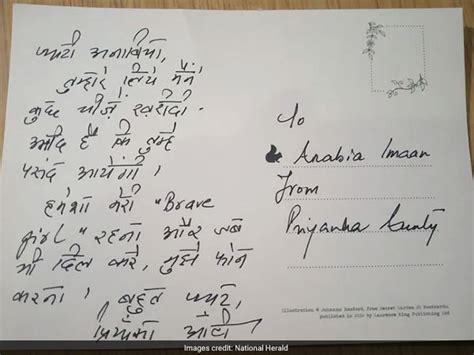 प्यारी अनाबिया,
तुम्हारे लिये मैंने
कुछ चीज़ें ख़रीदी.
है कि तुम्हे
पसंद आयेंगी।
हमेशा मेरी "Brave
girl" रहना और जब
भी दिल करे, मुझे फोन
करना। बहुत प्यार,
प्रियंका आंटी
To
Anabia Imaan
From
Priyanka Aunty
Illustration © Johanna Basford, from Secret Garden 20 Postcards,
published in 2014 by Laurence King Publishing Ltd
Images credit: National Herald